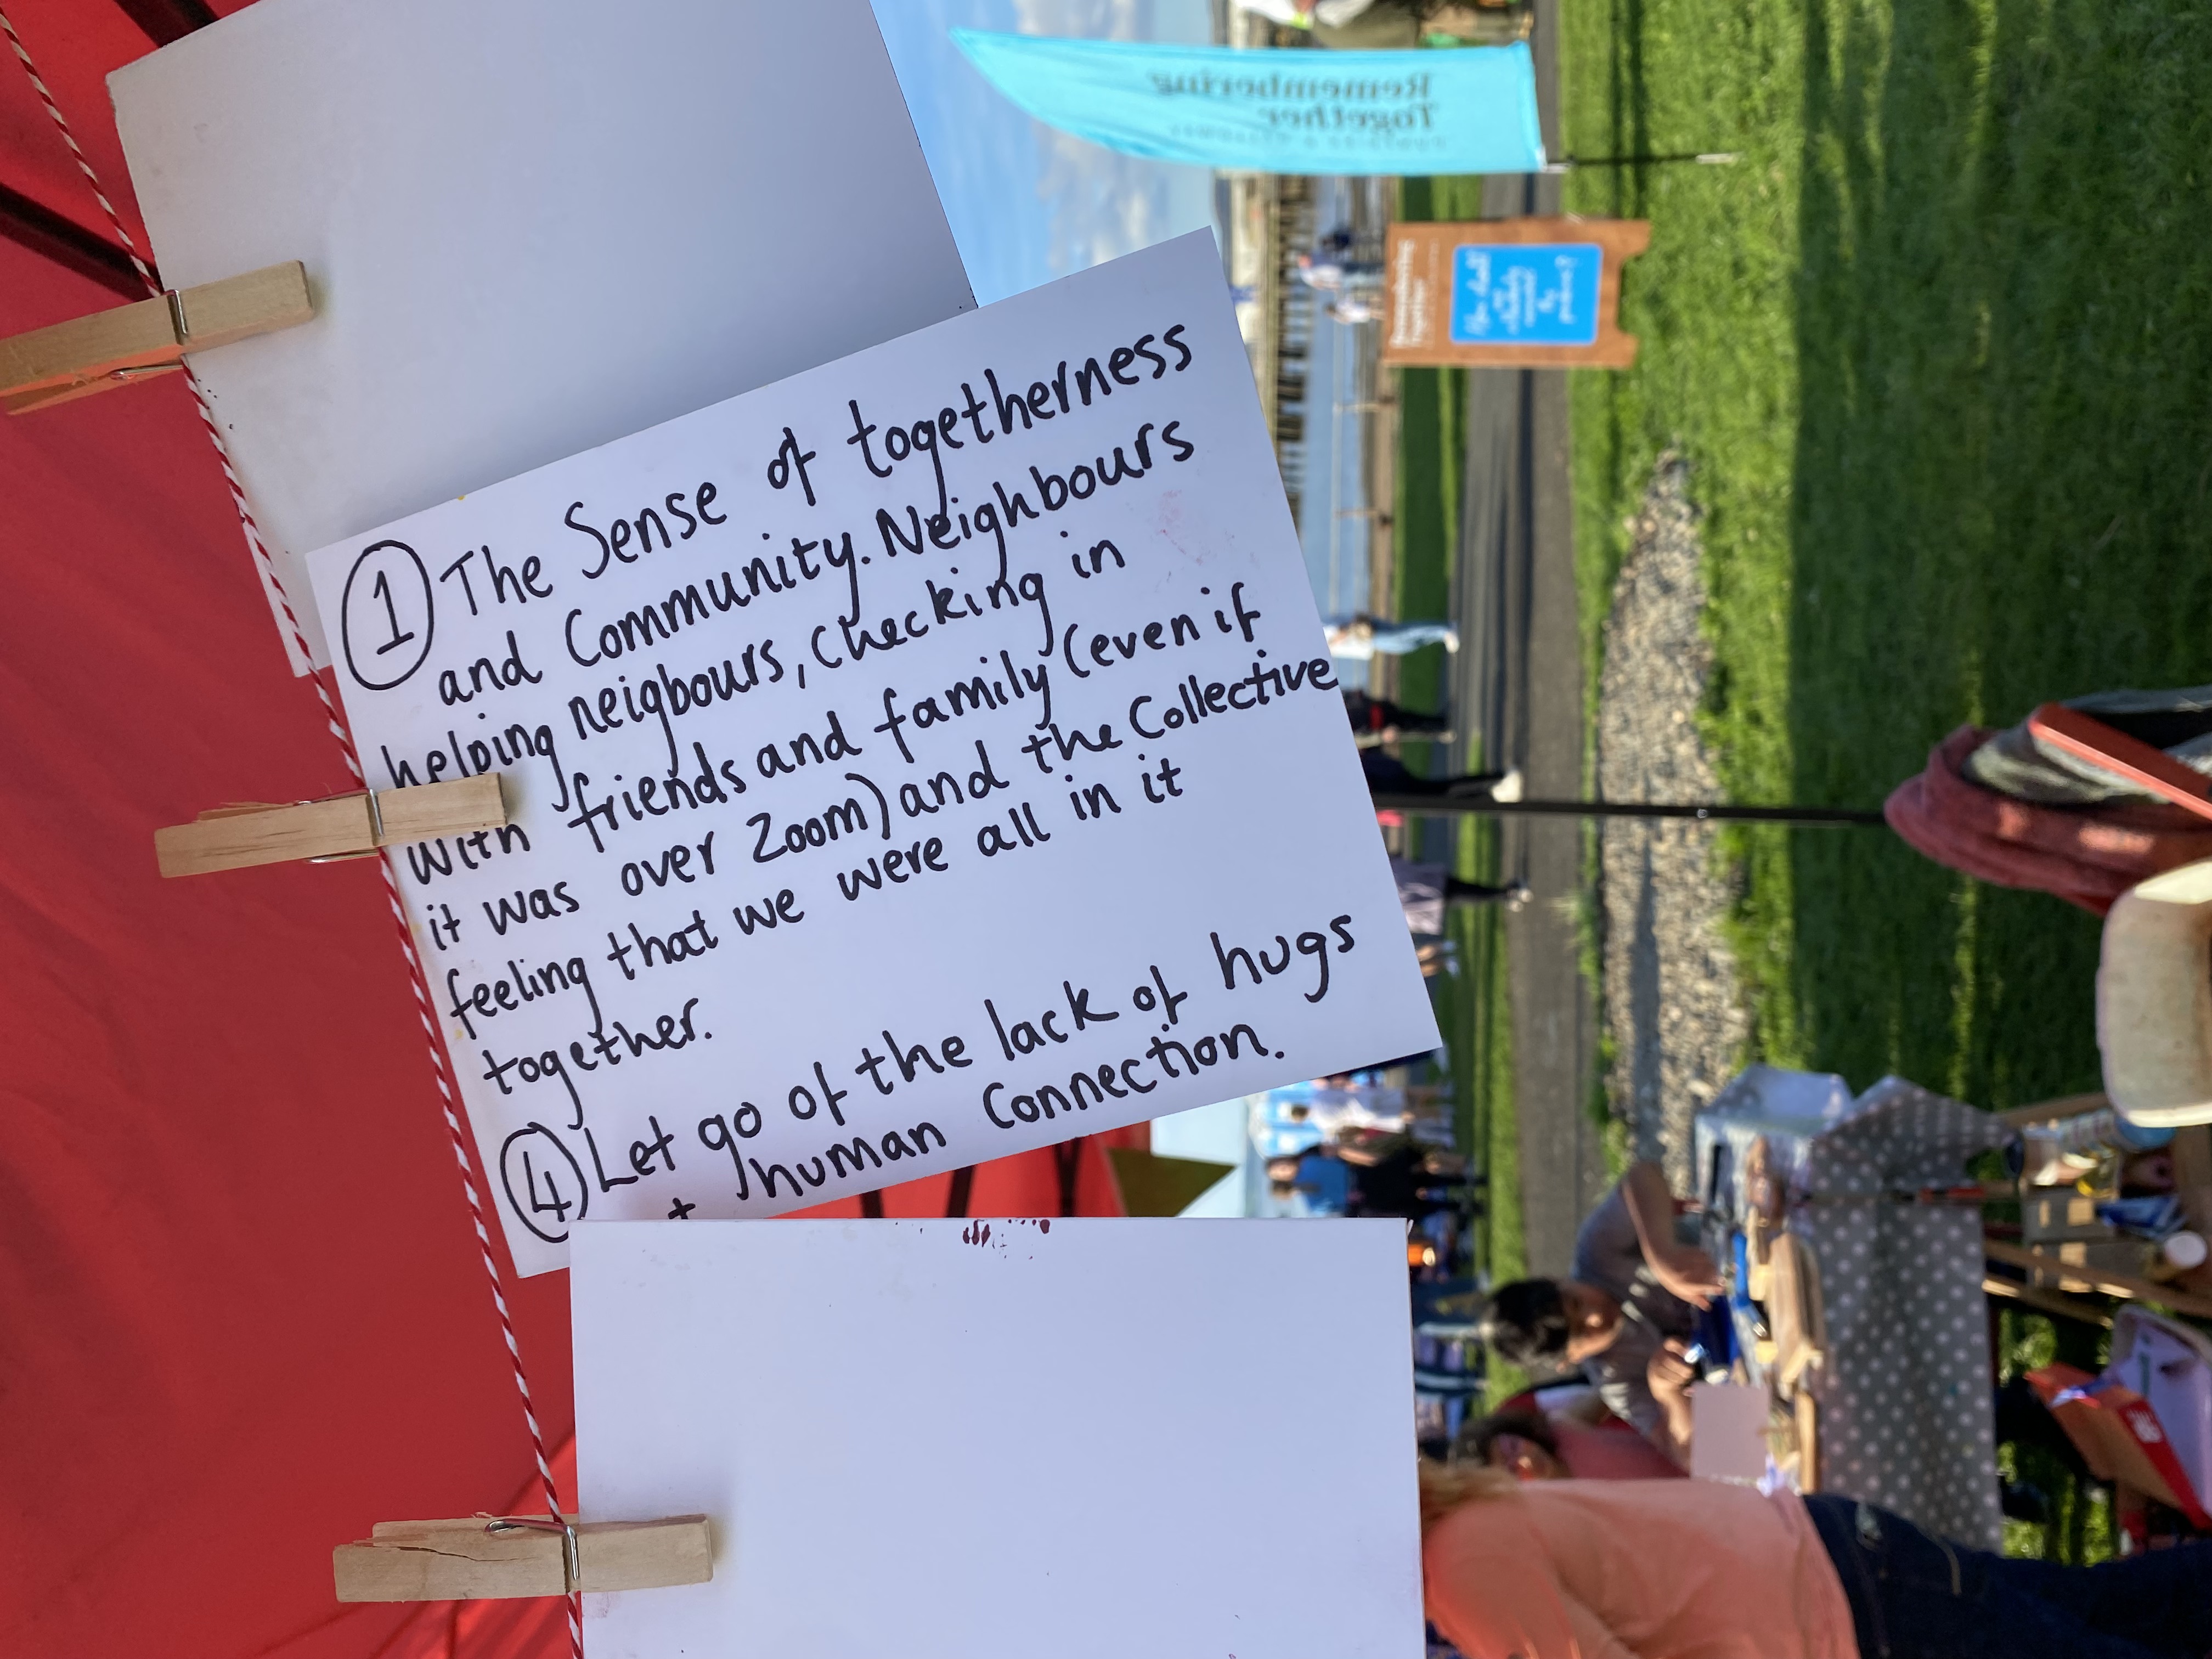 ① The Sense of togetherness
and Community. Neighbours
helping neigbours, checking in
with friends and family (even if
it was over Zoom) and the Collective
feeling that we were all in it
together.
④ Let go of the lack of hugs
+ human Connection.
Remembering
Together
How should
we
collectively
the
pandemic?